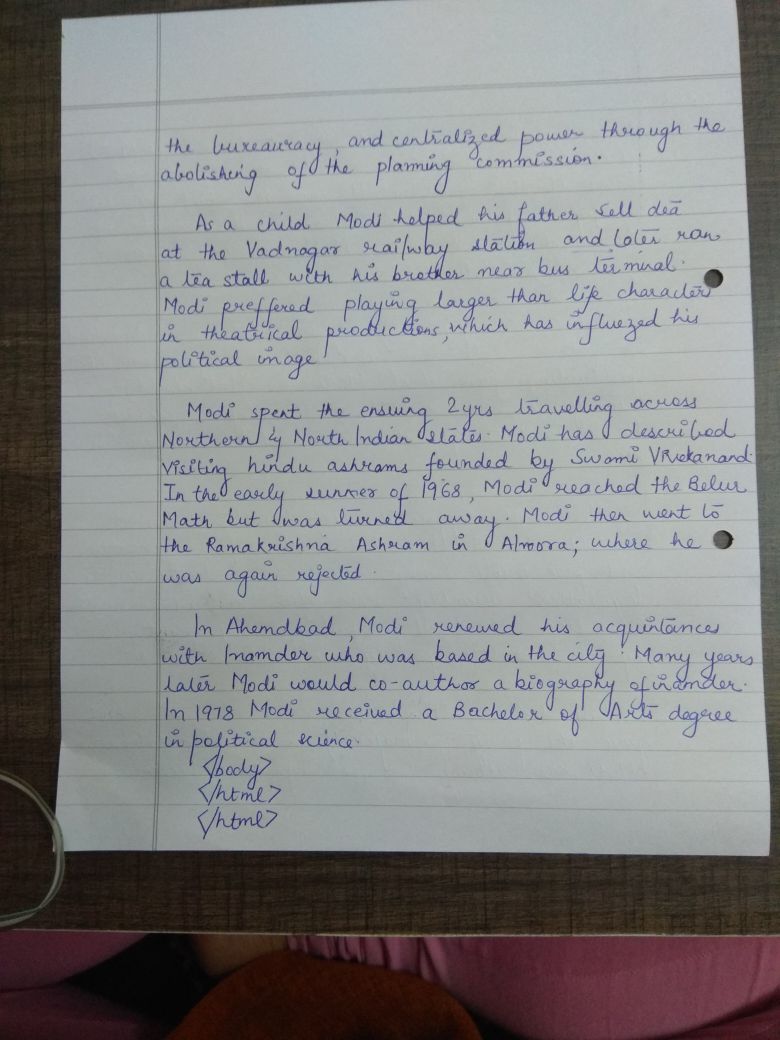 the bureauracy, and centralized power through the
abolisheing of the planning commission.
As a child Modi helped his father sell dea
at the Vadnagar railway station and later ran
a tea stall with his brother near bus terminal.
Modi preffered playing larger than life character
in theatrical productions, which has influezed his
political image
Modi spent the ensuing 2yrs travelling across
Northern & North Indian states. Modi has described
visiting hindu ashrams founded by Swami Vivekanand.
In the early summer of 1968, Modi reached the Belur
Math but was turned away. Modi then went to
the Ramakrishna Ashram in Almora; where he
was again rejected.
In Ahemdbad, Modi renewed his acquintances
with Inamder who was based in the city. Many years
later Modi would co-author a biography of inamder.
In 1978 Modi received a Bachelor of Arts degree
in political science.
</body>
</html>
</html>